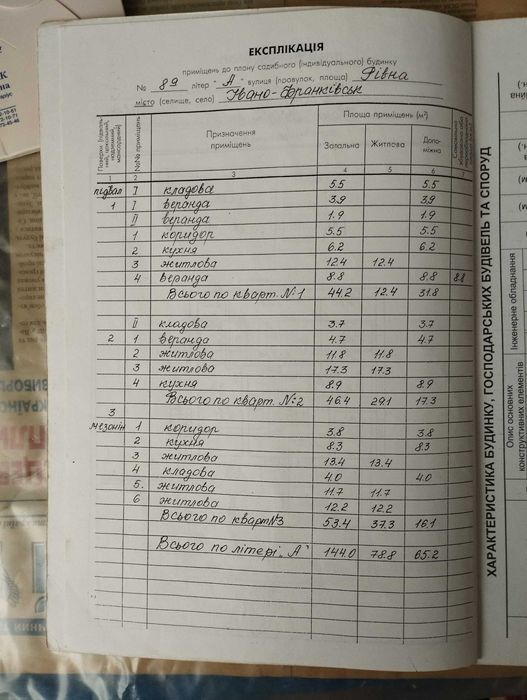 ЕКСПЛІКАЦІЯ
приміщень до плану садибного (індивідуального) будинку
№ 89 літер "А" вулиця (провулок, площа) Рівна
місто (селище, село) Івано-Франківськ
Поверхи (підвальний, цокольний, надземний, мансардний) №№ приміщень Призначення приміщень Площа приміщень (м²)
Загальна Житлова Допоміжна
1 2 3 4 5 6 7
підвал I кладова 5.5 5.5
1 I веранда 3.9 3.9
II веранда 1.9 1.9
1 коридор 5.5 5.5
2 кухня 6.2 6.2
3 житлова 12.4 12.4
4 веранда 8.8 8.8 8.8
Всього по кварт. №1 44.2 12.4 31.8
II кладова 3.7 3.7
2 1 веранда 4.7 4.7
2 житлова 11.8 11.8
3 житлова 17.3 17.3
4 кухня 8.9 8.9
Всього по кварт. №2 46.4 29.1 17.3
3
мезонін 1 коридор 3.8 3.8
2 кухня 8.3 8.3
3 житлова 13.4 13.4
4 кладова 4.0 4.0
5. житлова 11.7 11.7
6 житлова 12.2 12.2
Всього по кварт №3 53.4 37.3 16.1
Всього по літері "А" 144.0 78.8 65.2
ХАРАКТЕРИСТИКА БУДИНКУ, ГОСПОДАРСЬКИХ БУДІВЕЛЬ ТА СПОРУД
Опис основних конструктивних елементів
Інженерне обладнання